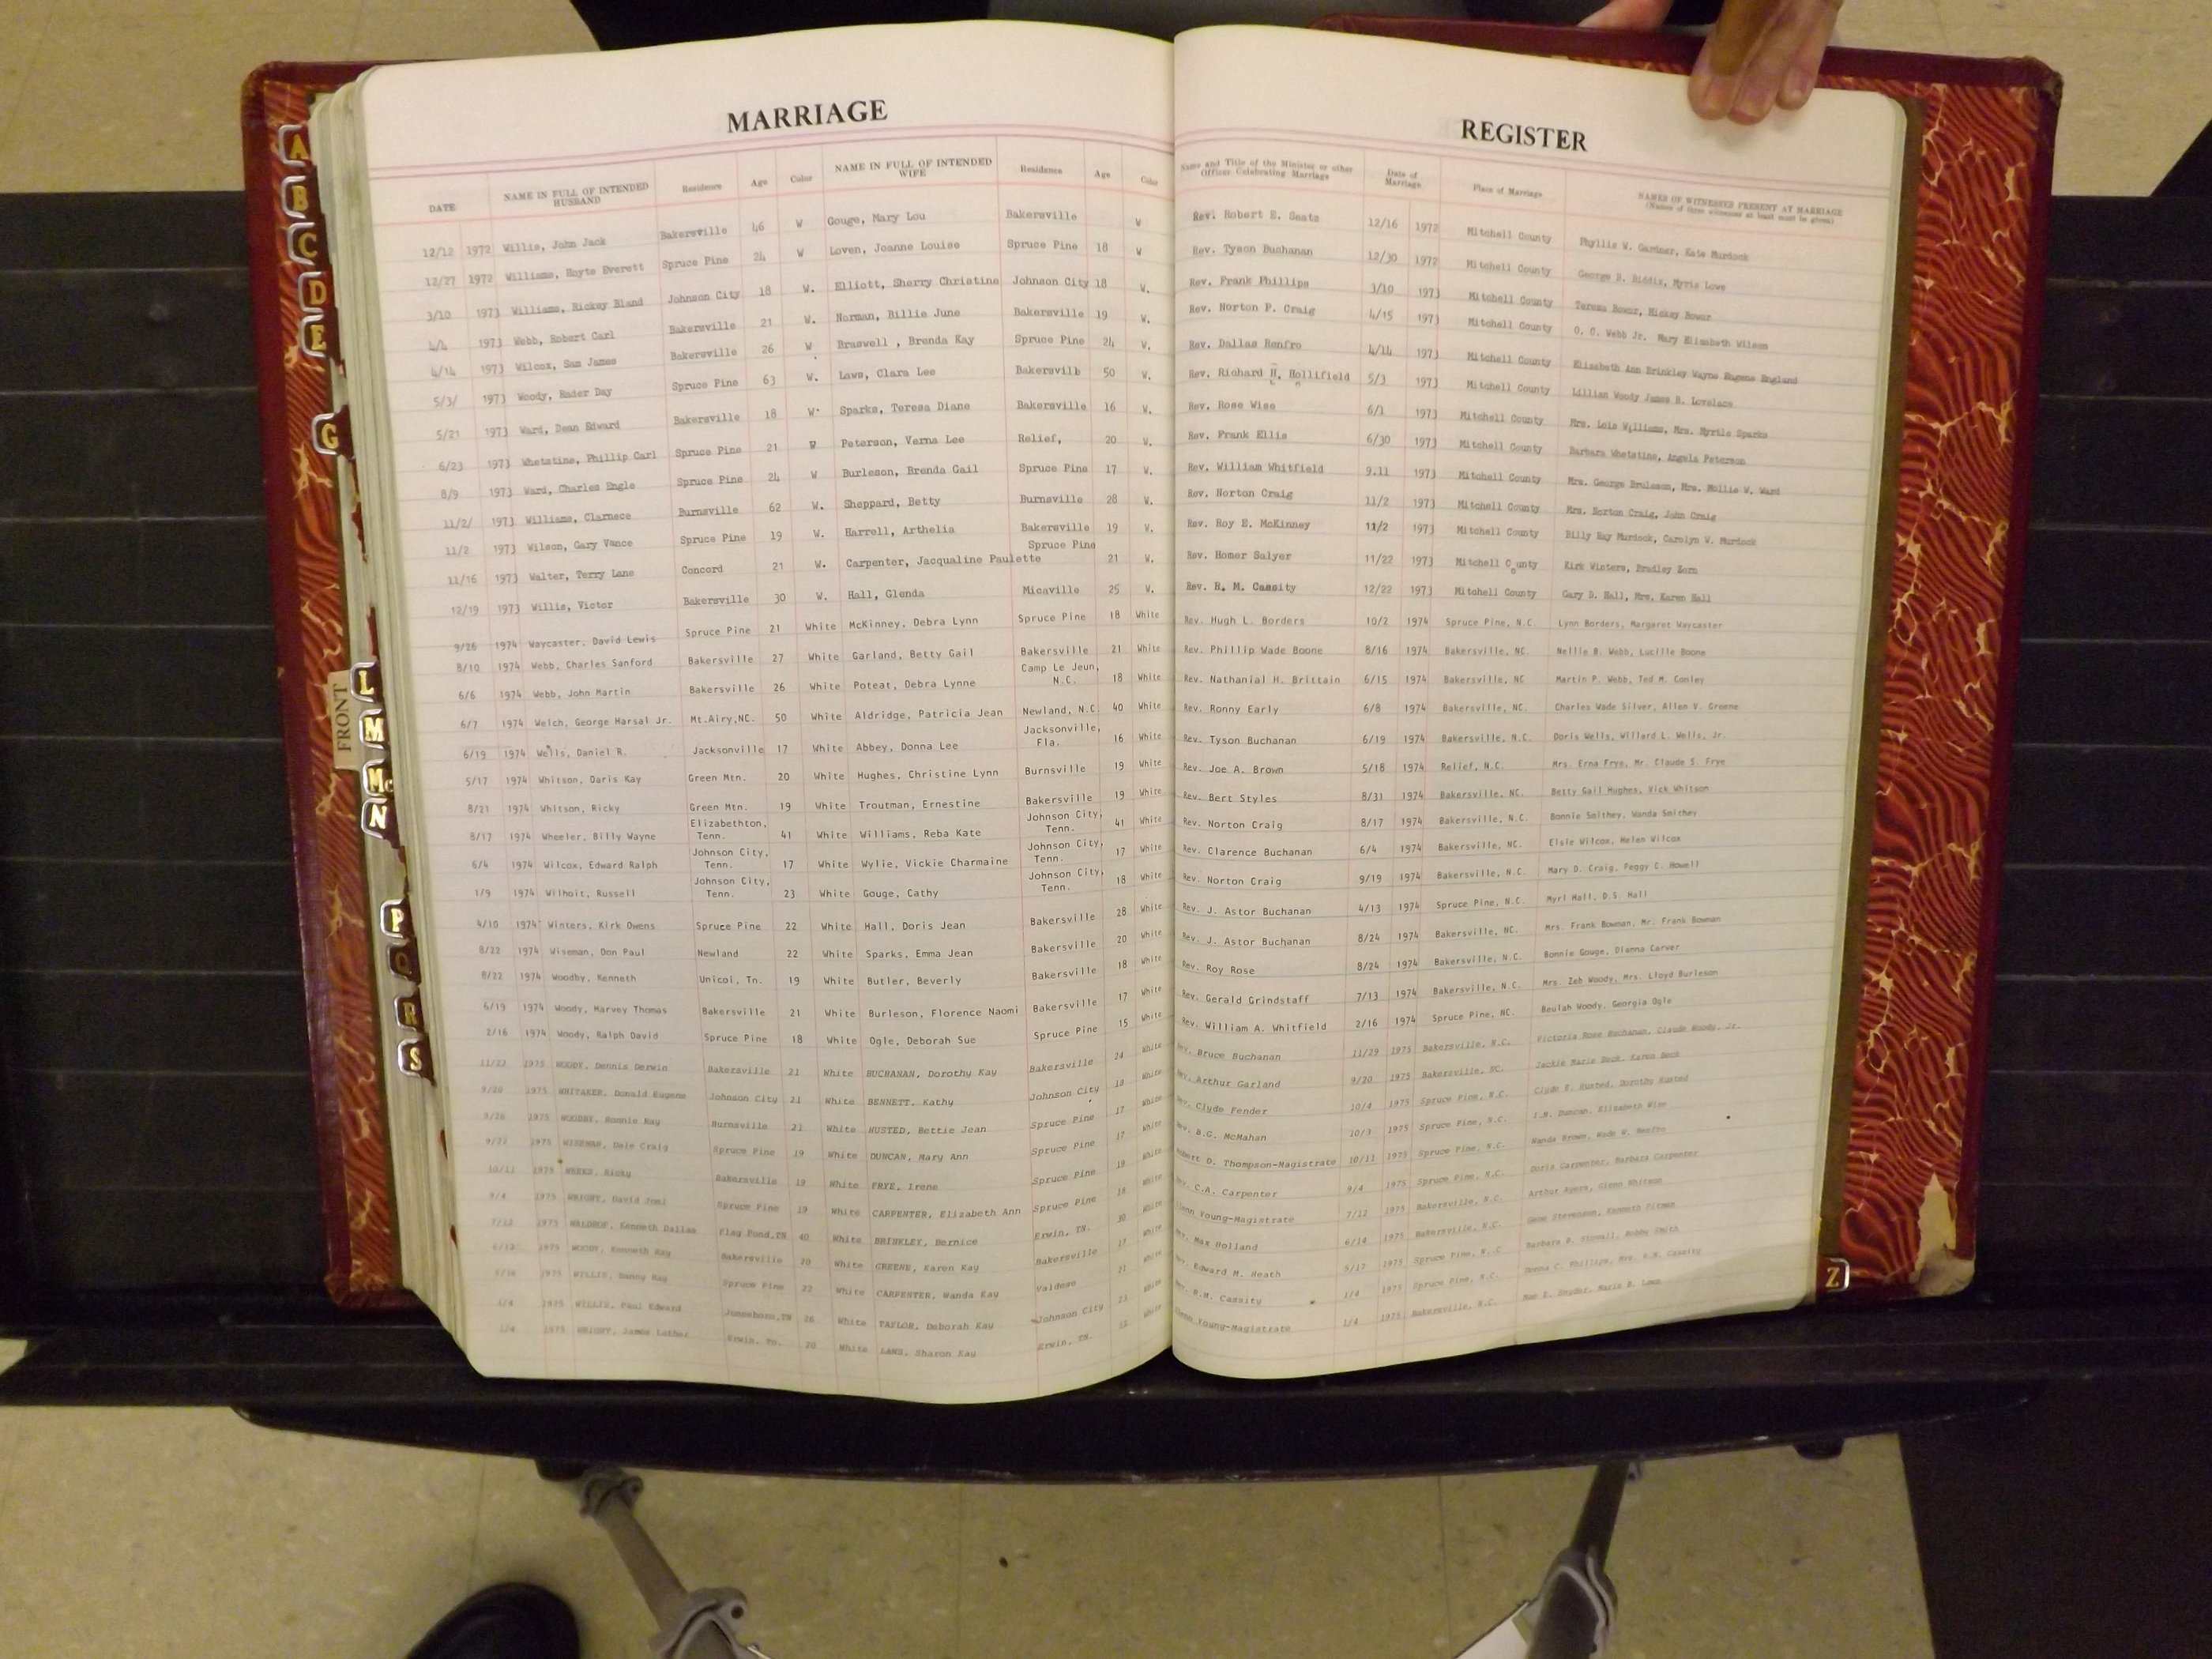 MARRIAGE
REGISTER
DATE NAME IN FULL OF INTENDED HUSBAND Residence Age Color NAME IN FULL OF INTENDED WIFE Residence Age Color Name and Title of the Minister or other Officer Celebrating Marriage Date of Marriage Place of Marriage NAMES OF WITNESSES PRESENT AT MARRIAGE (Names of three witnesses at least must be given)
12/12 1972 Willis, John Jack Bakersville 46 W Gouge, Mary Lou Bakersville W Rev. Robert E. 12/16 1972 Mitchell County Phyllis W. Gardner, Kate Murdock
12/27 1972 Williams, Hoyte Everett Spruce Pine 24 W Loven, Joanne Louise Spruce Pine 18 W Rev. Tyson Buchanan 12/30 1972 Mitchell County George D. Biddix, Myris Lowe
3/10 1973 Williams, Rickey Bland Johnson City 18 W. Elliott, Sherry Christine Johnson City 18 W. Rev. Frank Phillips 3/10 1973 Mitchell County Teresa
4/4 1973 Webb, Robert Carl Bakersville 21 W. Norman, Billie June Bakersville 19 W. Rev. Norton P. Craig 4/15 1973 Mitchell County O. C. Webb Jr. Mary Elizabeth Wilson
4/14 1973 Wilcox, Sam James Bakersville 26 W Braswell , Brenda Kay Spruce Pine 24 W. Rev. Dallas Renfro 4/14 1973 Mitchell County Elizabeth Ann Brinkley Wayne Eugene England
5/3/ 1973 Woody, Rader Day Spruce Pine 63 W. Laws, Clara Lee Bakersvilb 50 W. Rev. Richard H. Hollifield 5/3 1973 Mitchell County Lillian Woody James B. Lovelace
5/21 1973 Ward, Dean Edward Bakersville 18 W. Sparks, Teresa Diane Bakersville 16 W. Rev. Rose Wise 6/1 1973 Mitchell County Mrs. Lois Williams, Mrs. Myrtle Sparks
6/23 1973 Whetstine, Phillip Carl Spruce Pine 21 Peterson, Verna Lee Relief, 20 W. Rev. Frank Ellis 6/30 1973 Mitchell County Barbara Whetstine, Angela Peterson
8/9 1973 Ward, Charles Engle Spruce Pine 24 W Burleson, Brenda Gail Spruce Pine 17 W. Rev. William Whitfield 9.11 1973 Mitchell County Mrs. George Bruleson, Mrs. Mollie W. Ward
11/2/ 1973 Williams, Clarnece Burnsville 62 W. Sheppard, Betty Burnsville 28 W. Rev. Norton Craig 11/2 1973 Mitchell County Mrs. Norton Craig, John Craig
11/2 1973 Wilson, Gary Vance Spruce Pine 19 W. Harrell, Arthelia Bakersville 19 W. Rev. Roy E. McKinney 11/2 1973 Mitchell County Billy Ray Murdock, Carolyn W. Murdock
11/16 1973 Walter, Terry Lane Concord 21 W. Carpenter, Jacqualine Paulette Spruce Pine 21 W. Rev. Homer Salyer 11/22 1973 Mitchell County Kirk Winters, Bradley Zorn
12/19 1973 Willis, Victor Bakersville 30 W. Hall, Glenda Micaville 25 W. Rev. R. M. Cassity 12/22 1973 Mitchell County Gary D. Hall, Mrs. Karen Hall
9/26 1974 Waycaster, David Lewis Spruce Pine 21 White McKinney, Debra Lynn Spruce Pine 18 White Rev. Hugh L. Borders 10/2 1974 Spruce Pine, N.C. Lynn Borders, Margaret Waycaster
8/10 1974 Webb, Charles Sanford Bakersville 27 White Garland, Betty Gail Bakersville 21 White Rev. Phillip Wade Boone 8/16 1974 Bakersville, NC. Nellie B. Webb, Lucille Boone
6/6 1974 Webb, John Martin Bakersville 26 White Poteat, Debra Lynne Camp Le Jeun, N.C. 18 White Rev. Nathanial H. Brittain 6/15 1974 Bakersville, NC Martin P. Webb, Ted M. Conley
6/7 1974 Welch, George Harsal Jr. Mt.Airy,NC. 50 White Aldridge, Patricia Jean Newland, N.C. 40 White Rev. Ronny Early 6/8 1974 Bakersville, NC. Charles Wade Silver, Allen V. Greene
6/19 1974 Wells, Daniel R. Jacksonville 17 White Abbey, Donna Lee Jacksonville, Fla. 16 White Rev. Tyson Buchanan 6/19 1974 Bakersville, N.C. Doris Wells, Willard L. Wells, Jr.
5/17 1974 Whitson, Daris Kay Green Mtn. 20 White Hughes, Christine Lynn Burnsville 19 White Rev. Joe A. Brown 5/18 1974 Relief, N.C. Mrs. Erna Frye, Mr. Claude S. Frye
8/21 1974 Whitson, Ricky Green Mtn. 19 White Troutman, Ernestine Bakersville 19 White Rev. Bert Styles 8/31 1974 Bakersville, NC. Betty Gail Hughes, Vick Whitson
8/17 1974 Wheeler, Billy Wayne Elizabethton, Tenn. 41 White Williams, Reba Kate Johnson City, Tenn. 41 White Rev. Norton Craig 8/17 1974 Bakersville, N.C. Bonnie Smithey, Wanda Smithey
6/4 1974 Wilcox, Edward Ralph Johnson City, Tenn. 17 White Wylie, Vickie Charmaine Johnson City, Tenn. 17 White Rev. Clarence Buchanan 6/4 1974 Bakersville, NC. Elsie Wilcox, Helen Wilcox
1/9 1974 Wilhoit, Russell Johnson City, Tenn. 23 White Gouge, Cathy Johnson City, Tenn. 18 White Rev. Norton Craig 9/19 1974 Bakersville, N.C. Mary D. Craig, Peggy C. Howell
4/10 1974 Winters, Kirk Owens Spruce Pine 22 White Hall, Doris Jean Bakersville 28 White Rev. J. Astor Buchanan 4/13 1974 Spruce Pine, N.C. Myrl Hall, D.S. Hall
8/22 1974 Wiseman, Don Paul Newland 22 White Sparks, Emma Jean Bakersville 20 White Rev. J. Astor Buchanan 8/24 1974 Bakersville, NC. Mrs. Frank Bowman, Mr. Frank Bowman
8/22 1974 Woodby, Kenneth Unicoi, Tn. 19 White Butler, Beverly Bakersville 18 White Rev. Roy Rose 8/24 1974 Bakersville, N.C. Bonnie Gouge, Dianna Carver
6/19 1974 Woody, Harvey Thomas Bakersville 21 White Burleson, Florence Naomi Bakersville 17 White Rev. Gerald Grindstaff 7/13 1974 Bakersville, N.C. Mrs. Zeb Woody, Mrs. Lloyd Burleson
2/16 1974 Woody, Ralph David Spruce Pine 18 White Ogle, Deborah Sue Spruce Pine 15 White Rev. William A. Whitfield 2/16 1974 Spruce Pine, NC. Beulah Woody, Georgia Ogle
11/22 1975 WOODY, Dennis Derwin Bakersville 21 White BUCHANAN, Dorothy Kay Bakersville 24 White Bruce Buchanan 11/29 1975 Bakersville, N.C. Victoria Rose Buchanan, Claude Woody, Jr.
9/20 1975 WHITAKER, Donald Eugene Johnson City 21 White BENNETT, Kathy Johnson City 18 White Arthur Garland 9/20 1975 Bakersville, NC. Jackie Marie Beck, Karen Beck
9/26 1975 WOODBY, Ronnie Ray Burnsville 21 White HUSTED, Bettie Jean Spruce Pine 17 White Clyde Fender 10/4 1975 Spruce Pine, N.C. Clyde E. Husted, Dorothy Husted
9/22 1975 WISEMAN, Dale Craig Spruce Pine 19 White DUNCAN, Mary Ann Spruce Pine 17 White B.G. McMahan 10/3 1975 Spruce Pine, N.C. Duncan, Elizabeth Wise
10/11 1975 WEEKS, Ricky Bakersville 19 White FRYE, Irene Spruce Pine 18 White Robert D. Thompson-Magistrate 10/11 1975 Spruce Pine, N.C. Wanda Brown, Wade W. Renfro
9/4 1975 WRIGHT, David Joel Spruce Pine 19 White CARPENTER, Elizabeth Ann Spruce Pine 18 White C.A. Carpenter 9/4 1975 Spruce Pine, N.C. Doris Carpenter, Barbara Carpenter
7/12 1975 WALDROP, Kenneth Dallas Flag Pond,TN 40 White BRINKLEY, Bernice Erwin, TN. 30 White Glenn Young-Magistrate 7/12 1975 Bakersville, N.C. Arthur Ayers, Glenn Whitson
6/12 1975 WOODY, Kenneth Ray Bakersville 20 White GREENE, Karen Kay Bakersville 17 White Max Holland 6/14 1975 Bakersville, N.C. Gene Stevenson, Kenneth Pitman
5/16 1975 WILLIS, Danny Ray Spruce Pine 22 White CARPENTER, Wanda Kay Valdese 21 White Edward M. Heath 5/17 1975 Spruce Pine, N.C Barbara B. Stowall, Bobby Smith
1/4 1975 WILLIS, Paul Edward Jonesboro,TN 26 White TAYLOR, Deborah Kay Johnson City 23 White R.M. Cassity 1/4 1975 Spruce Pine, N.C. Donna C. Phillips, Mrs. R.M. Cassity
1/4 1975 WRIGHT, James Luther Erwin, Tn. 20 White LAWS, Sharon Kay Erwin, TN. White Glenn Young-Magistrate 1/4 1975 Bakersville, N.C. Mae E. Snyder, Marie B. Laws
A
B
C
D
E
G
FRONT
L
M
Mc
N
P
Q
R
S
Z